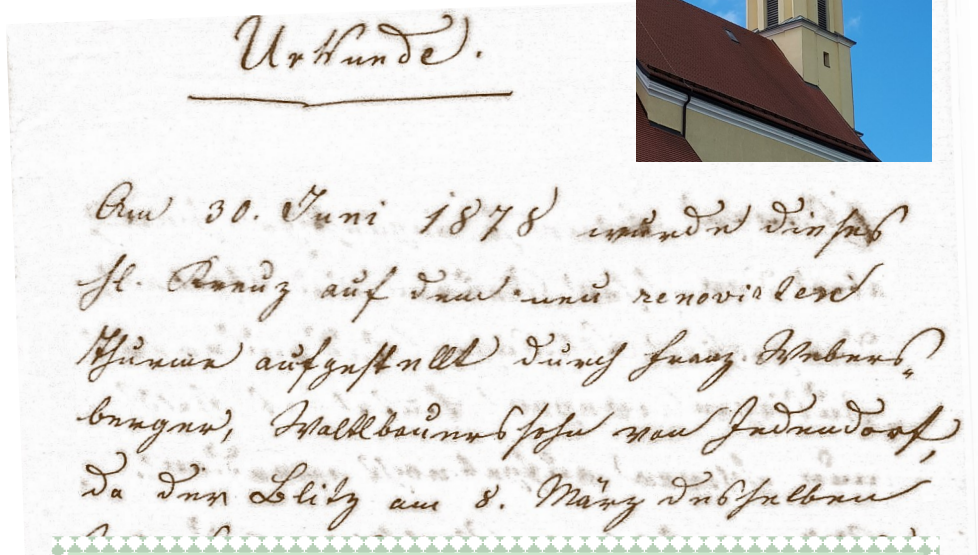 Urkunde.
Am 30. Juni 1878 wurde dieses
hl. Kreuz auf dem neu renovirten
Thurme aufgestellt durch Franz Webers„
berger, Waltlbauerssohn von Jedendorf,
da der Blitz am 8. März desselben